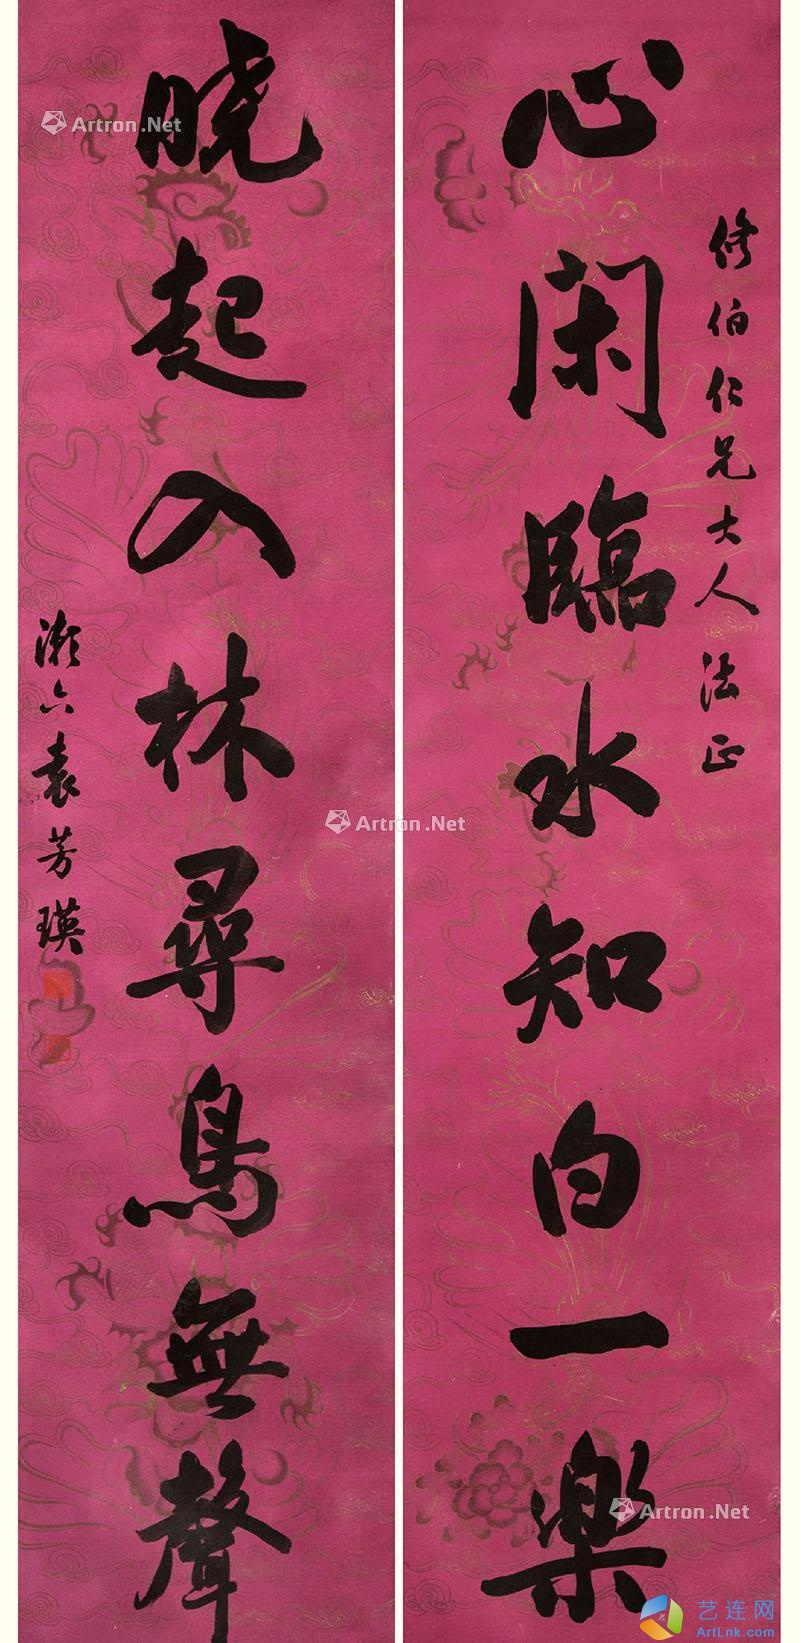 修伯仁兄大人法正
心閑臨水知白一樂
曉起入林尋鳥無聲
漱六袁芳瑛
Artron.Net
Artron.Net
Artron.Net
艺连网
ArtLnk.com